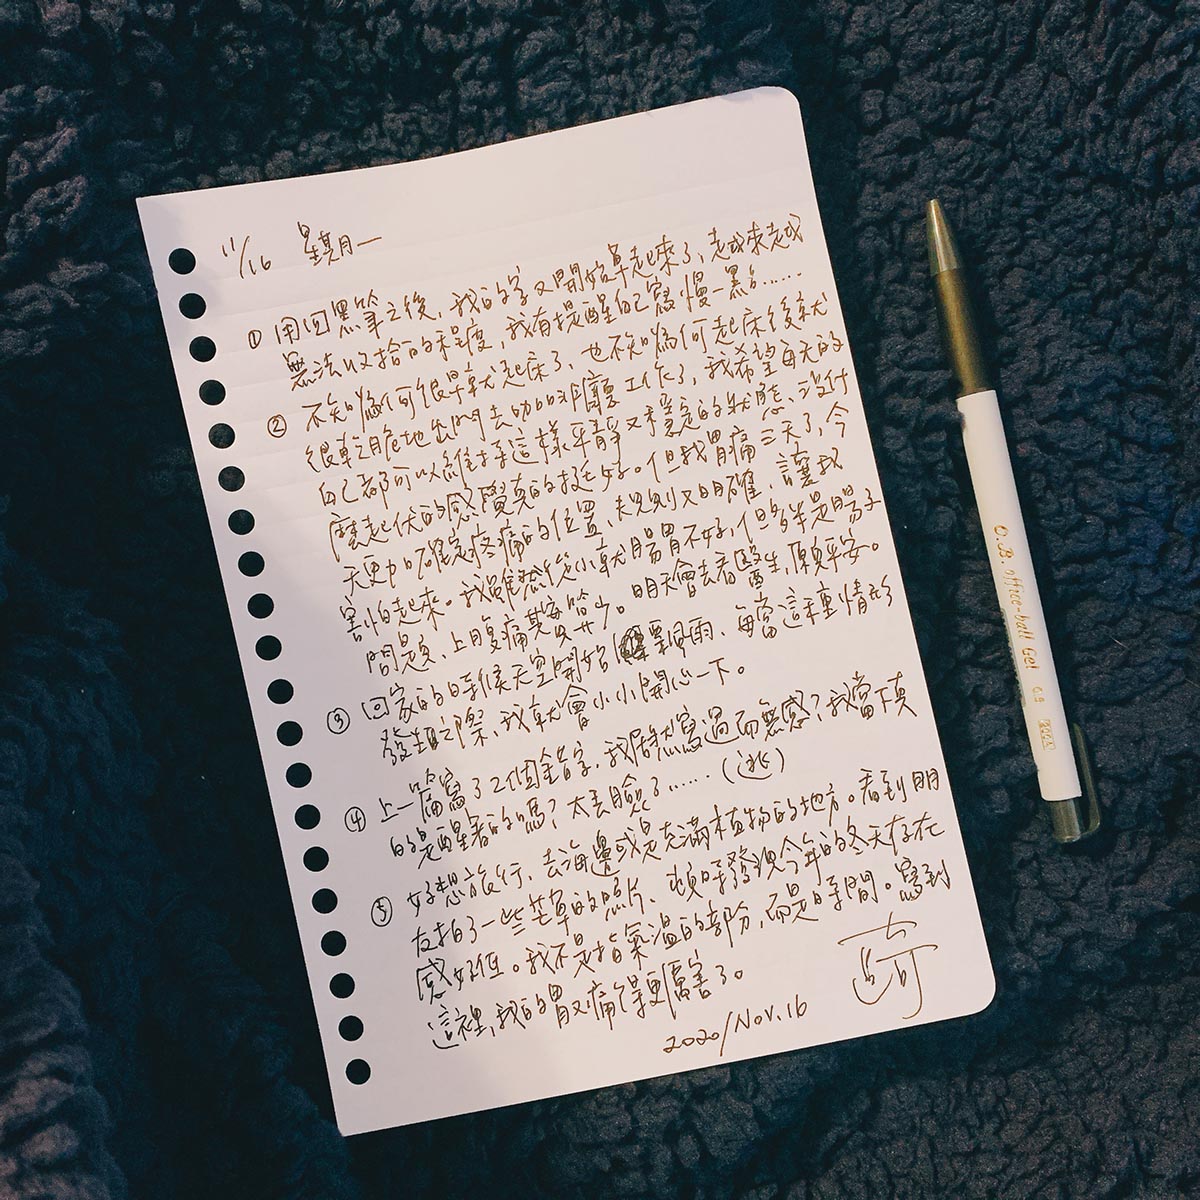 11/16 星期一
① 用回黑筆之後，我的字又開始草起來了，越來越
無法收拾的程度，我有提醒自己寫慢一點……
② 不知為何很早就起床了，也不知為何起床後就
很乾脆地出門去咖啡廳工作了，我希望每天的
自己都可以維持這樣平靜又穩定的狀態、沒什
麼起伏的感覺真的挺好。但我胃痛三天了，今
天更加確定疼痛的位置、規則又明確，讓我
害怕起來。我雖然從小就腸胃不好，但多半是腸子
問題、上腹痛其實比較少。明天會去看醫生，願平安。
③ 回家的時候天空開始颳風雨、每當這種情形
發生之際，我就會小小開心一下。
④ 上一篇寫了2個錯字，我居然寫過而無感？我當下真
的是醒著的嗎？太丟臉了……（逃）
⑤ 好想旅行，去海邊或是充滿植物的地方。看到朋
友拍了一些芒草的照片、頓時發現今年的冬天存在
感好低。我不是指氣溫的部份，而是時間。寫到
這裡，我的胃又痛得更厲害了。
2020/Nov.16
O.B. office-ball Gel 0.5 200A